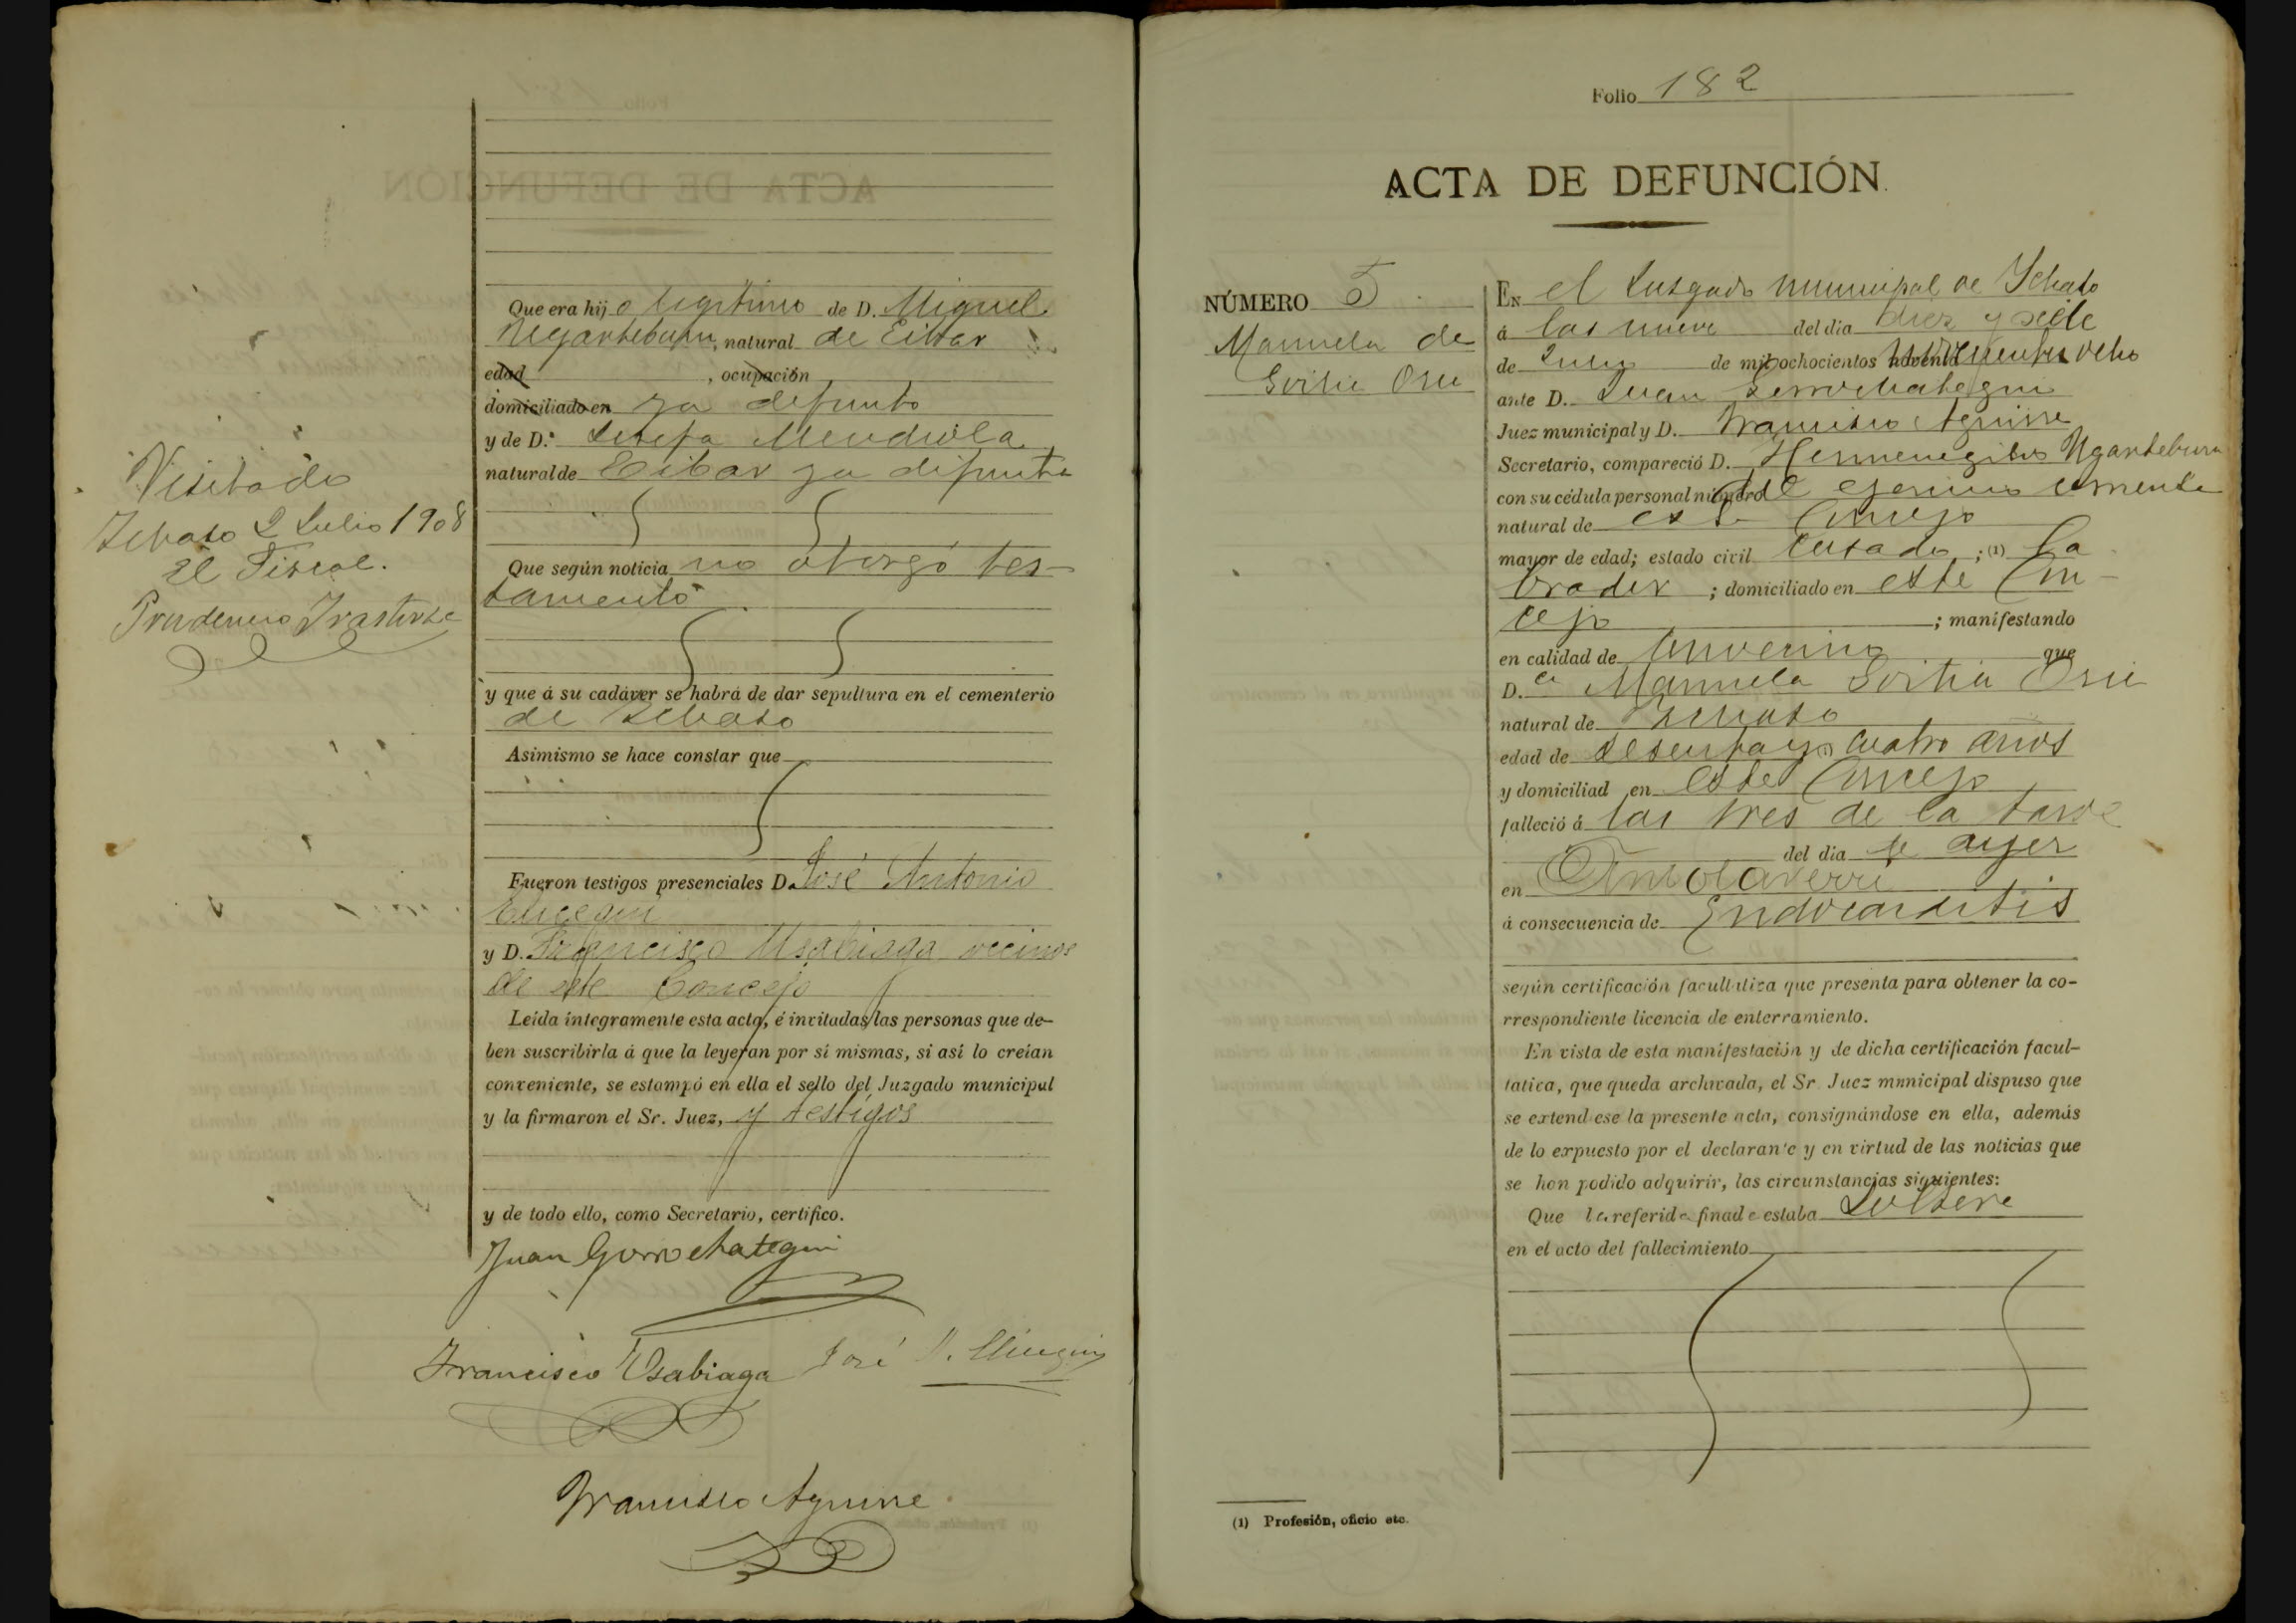 Que era hijo legítimo de D. Miguel
Ugartebúru, natural de Eibar
edad , ocupación
domiciliado en ya defunto
y de D.ª Josefa Mendiola
natural de Eibar ya difunta
Que según noticia no otorgó tes-
tamento
y que á su cadáver se habrá de dar sepultura en el cementerio
de
Asimismo se hace constar que
Fueron testigos presenciales D. José Antonio
y D. Francisco Usabiaga vecinos
de este Concejo
Leída íntegramente esta acta, é invitadas las personas que de-
ben suscribirla á que la leyeran por sí mismas, si así lo creían
conveniente, se estampó en ella el sello del Juzgado municipal
y la firmaron el Sr. Juez, y testigos
y de todo ello, como Secretario, certifico.
Juan Gorrochategui
Francisco Usabiaga José
Francisco Aguirre
Visitado
2 Julio 1908
El Fiscal.
Prudencio
Folio 182
ACTA DE DEFUNCIÓN.
NÚMERO 5
Manuela de
EN el Juzgado municipal de
á las nueve del dia diez y siete
de de mil ochocientos noventa novecientos ocho
ante D. Juan Gorrochategui
Juez municipal y D. Francisco Aguirre
Secretario, compareció D. Hermenegildo Ugarteburu
con su cédula personal número del ejercicio corriente
natural de este Concejo
mayor de edad; estado civil Casado ; (1) La
brador ; domiciliado en este Con-
cejo ; manifestando
en calidad de convecino que
D.ª Manuela
natural de
edad de sesenta y cuatro años
y domiciliad en este Concejo
falleció á las tres de la tarde
del dia de ayer
en
á consecuencia de Endocarditis
según certificación facultativa que presenta para obtener la co-
rrespondiente licencia de enterramiento.
En vista de esta manifestación y de dicha certificación facul-
tativa, que queda archivada, el Sr. Juez municipal dispuso que
se extendiese la presente acta, consignándose en ella, además
de lo expuesto por el declarante y en virtud de las noticias que
se han podido adquirir, las circunstancias siguientes:
Que la referida finada estaba Soltera
en el acto del fallecimiento
(1) Profesión, oficio etc.